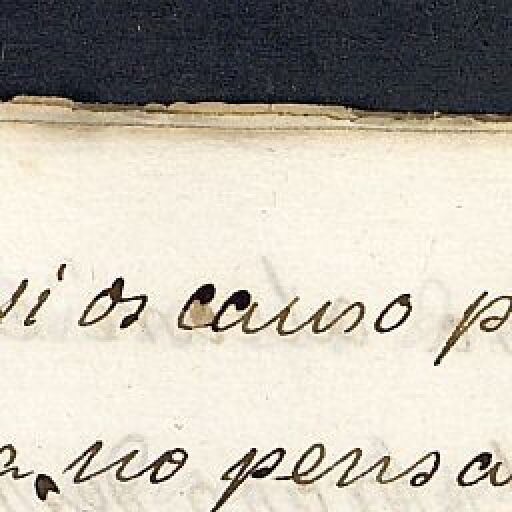 si os causo p
a, no pensa